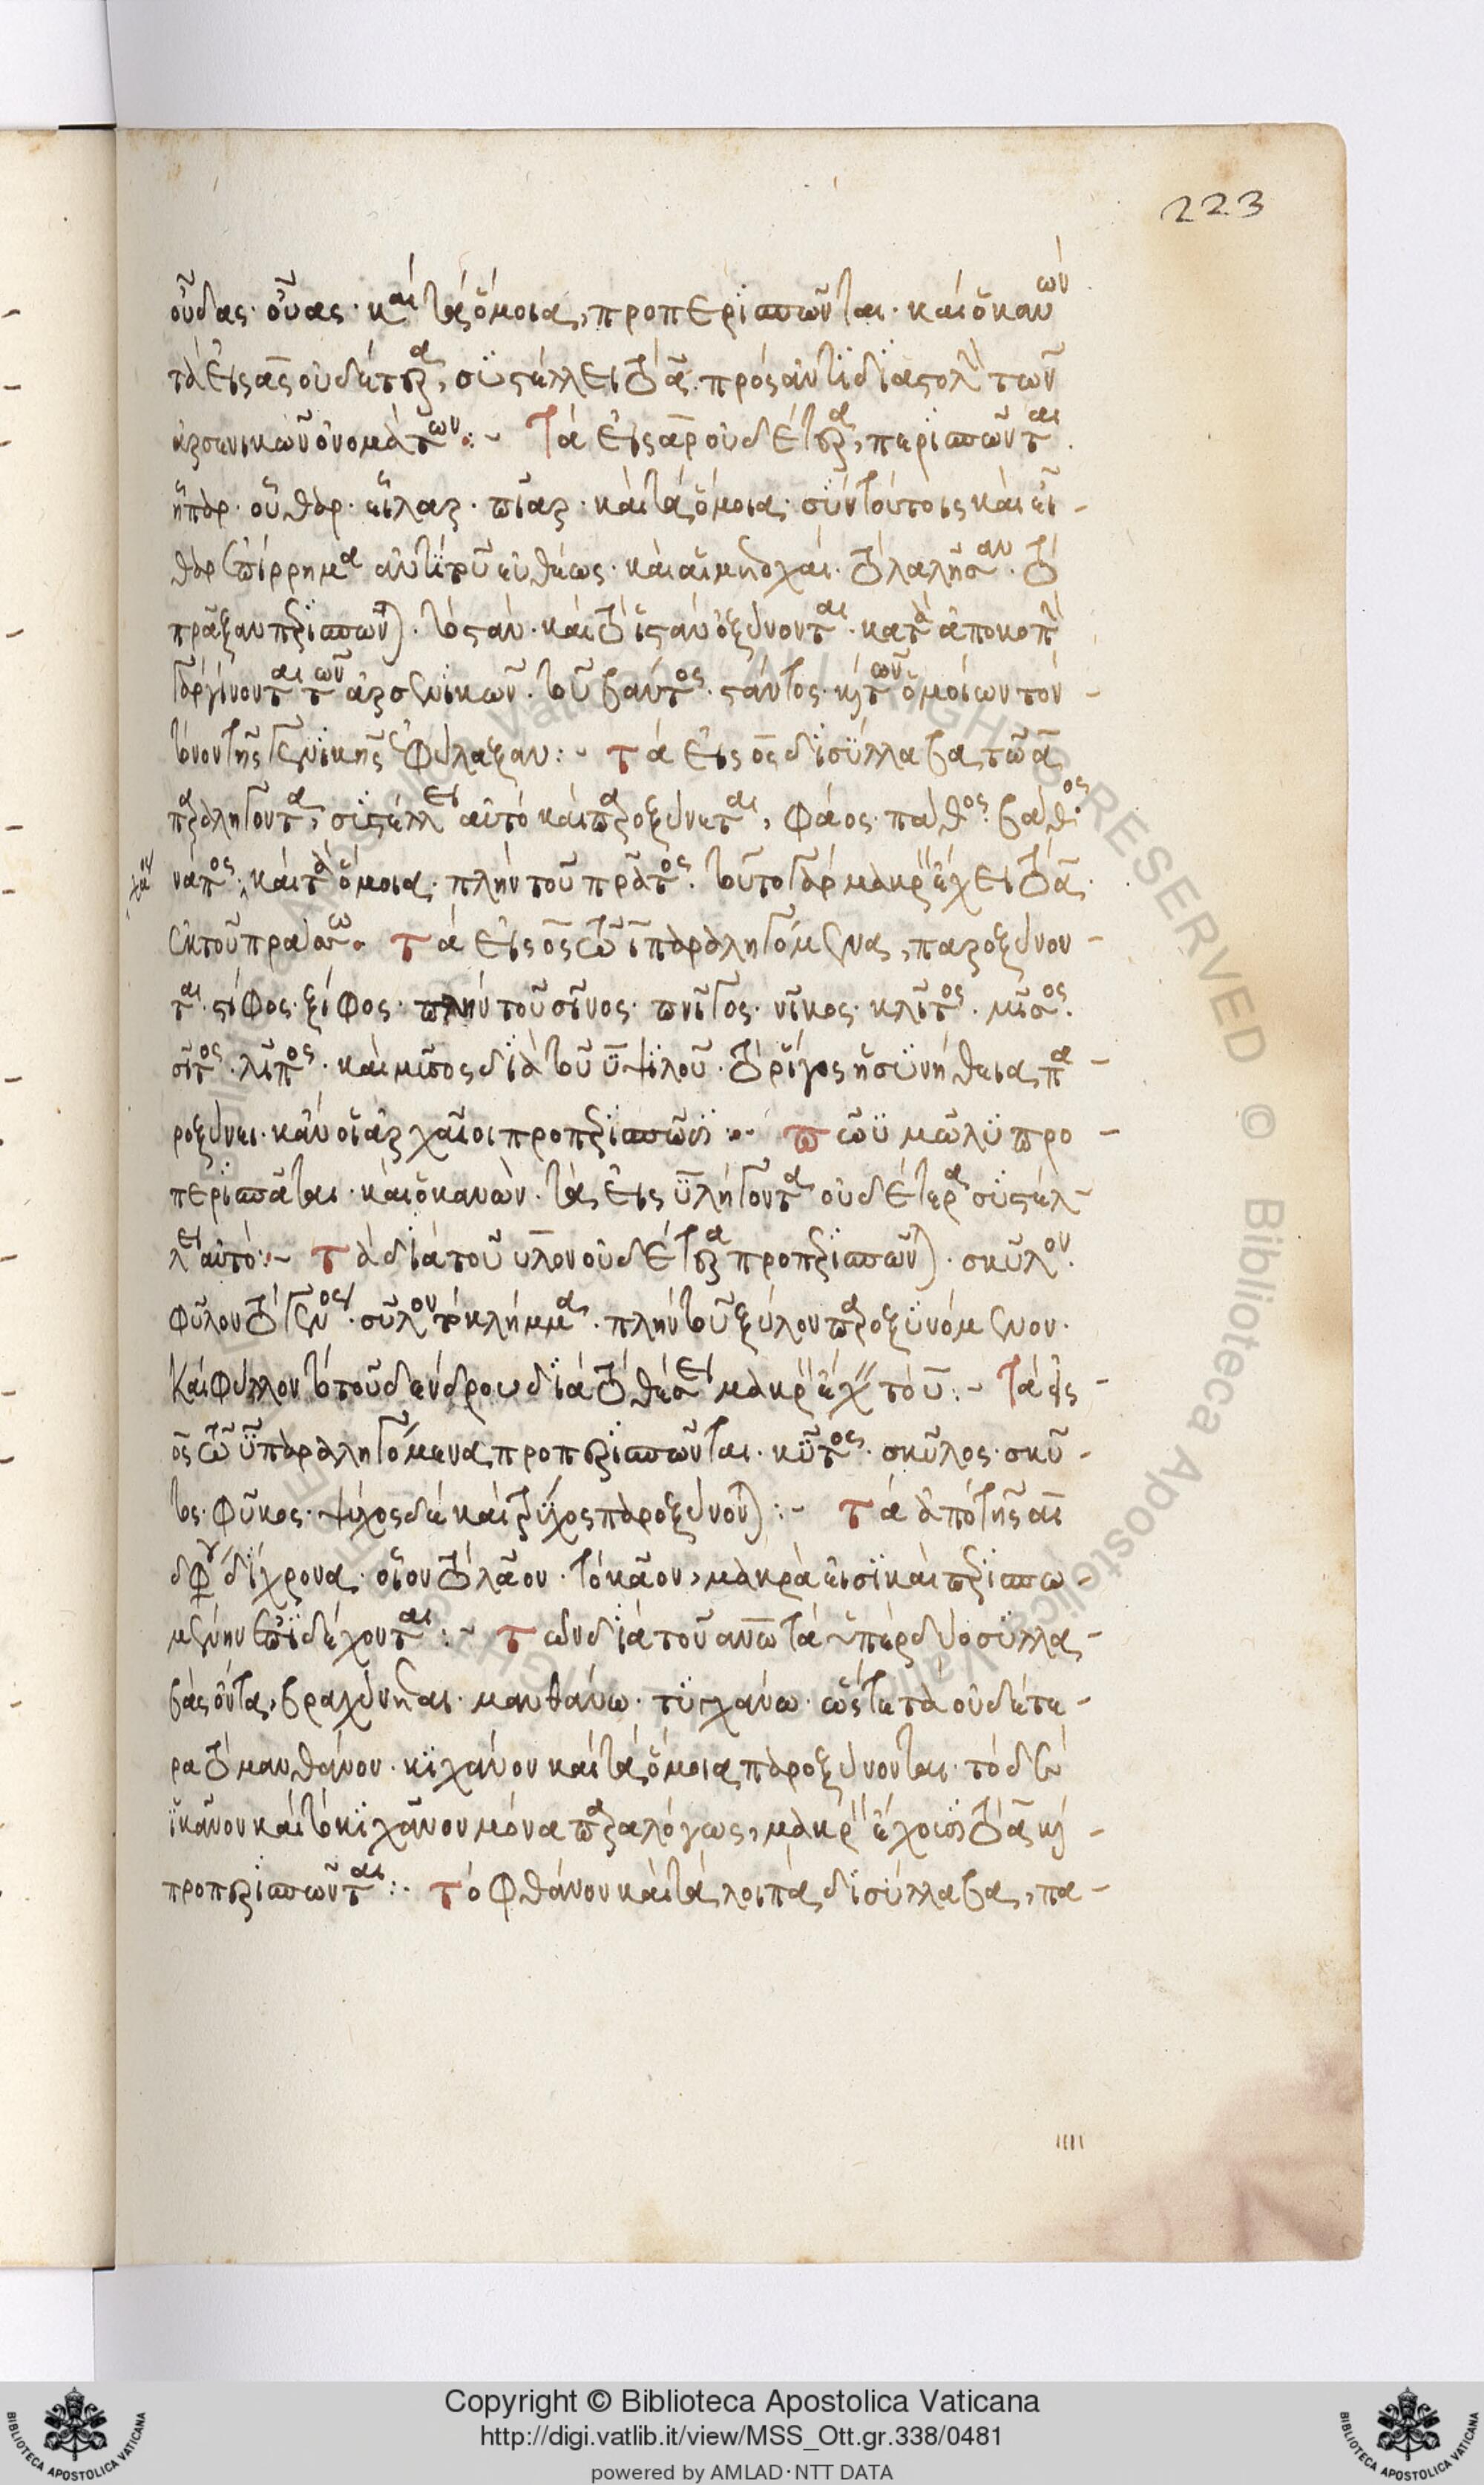 223
οὖδας· οὖας· καὶ τὰ ὅμοια, προπερισπῶνται· καὶ ὁ κανὼν
τὰ εἰς ας οὐδέτερα, συστέλλει τὸ α πρὸς ἀντιδιαστολὴν τῶν
ἀρσενικῶν ὀνομάτων:- Τὰ εἰς αρ οὐδέτερα, περισπῶνται·
ἧπαρ· οὖθαρ· εἶλαρ· πῖαρ· καὶ τὰ ὅμοια· σὺν τούτοις καὶ εἶ-
θαρ ἐπίρρημα ἀντὶ τοῦ εὐθέως· καὶ αἱ μετοχαί· τὸ λαλῆσαν· τὸ
πρᾶξαν περισπῶνται· τὸ στὰν· καὶ τὸ ἱστὰν ὀξύνονται· κατὰ ἀποκοπὴν
γὰρ γίνονται τῶν ἀρσενικῶν· τοῦ βάντος· στάντος· καὶ τῶν ὁμοίων τὸν
τόνον τῆς γενικῆς ἐφύλαξαν:- τὰ εἰς ος δισύλλαβα τῶ α
παραλήγοντα, συστέλλει αὐτὸ καὶ παροξύνεται, φάος· πάθος· βάθος·
νάπος· καὶ τὰ ὅμοια· πλὴν τοῦ πρᾶτος· τοῦτο γὰρ μακρὸν ἔχει τὸ α·
ἐκ τοῦ πράσσω· τὰ εἰς ος τῶ ι παραληγόμενα, παροξύνον-
ται· στίφος· ξίφος· πλὴν τοῦ σῖνος· πνῖγος· νῖκος· κλῖτος· μῖσος·
σῖτος· λῖπος· καὶ μῦσος διὰ τοῦ υ ψιλοῦ· τὸ ῥίγος ἡ συνήθεια πα-
ροξύνει· κἂν οἱ ἀρχαῖοι προπερισπῶσι:- πῶϋ μῶλυ προ-
περισπᾶται· καὶ ὁ κανὼν· τὰ εἰς υ λήγοντα οὐδέτερα συστέλ-
λει αὐτό:- τὰ διὰ τοῦ υλον οὐδέτερα προπερισπῶνται· σκῦλον·
φῦλον τὸ γένος· σῦλον τὸ κλήμμα· πλὴν τοῦ ξύλον παροξυνόμενον·
Καὶ φύλλον τὸ τοῦ δένδρου διὰ τὸ θέσει μακρὸν ἔχειν τὸ υ:- Τὰ εἰς
ος τῶ υ παραληγόμενα προπερισπῶνται· κῦτος· σκῦλος· σκῦ-
τος· φῦκος· ψύχος δὲ καὶ στύχος παροξύνονται:- τὰ ἀπὸ τῆς αι
διφθόγγου δίχρονα· οἷον τὸ λᾶον· τὸ κᾶον, μακρὰ εἰσὶ καὶ περισπω-
μένην ἐπιδέχονται:- τῶν διὰ τοῦ ανω τὰ ὑπὲρ δύο συλλα-
βὰς ὄντα, βραχύνεται· μανθάνω· τυγχάνω· ὥστε τὰ οὐδέτε-
ρα τὸ μανθάνον· κιχάνον καὶ τὰ ὅμοια παροξύνονται· τὸ δὲ
ἱκᾶνον καὶ τὸ κιχᾶνον μόνα παραλόγως, μακρὸν ἔχουσι τὸ α καὶ
προπερισπῶνται:- τὸ φθάνον καὶ τὰ λοιπὰ δισύλλαβα, πα-
Copyright © Biblioteca Apostolica Vaticana
http://digi.vatlib.it/view/MSS_Ott.gr.338/0481
powered by AMLAD·NTT DATA